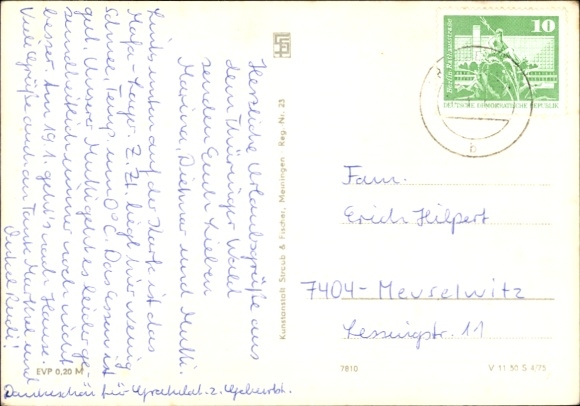 Herzliche Urlaubsgrüße aus
dem Thüringer Wald
senden Euch Lieben
Marina, Diethar und Mutti.
Links unten auf der Karte ist das
Mafa-Lager. Z. Zt. liegt hier wenig
Schnee, Temp. um 0°C. Das Essen ist
gut. Unserer Mutti geht es leider ge-
sundheitlich immer noch nicht
besser. Am 19.1. geht's nach Hause.
Viele Grüße auch an Tante Martha und
Onkel Rudi!
Dankeschön für Grußkt. z. Geburtst.
EVP 0,20 M
Kunstanstalt Straub & Fischer, Meiningen Reg.-Nr. 23
10
DEUTSCHE DEMOKRATISCHE REPUBLIK
b
Fam.
Erich Hilpert
7404-Meuselwitz
Lessingstr. 11
7810
V 11 50 S 4/75